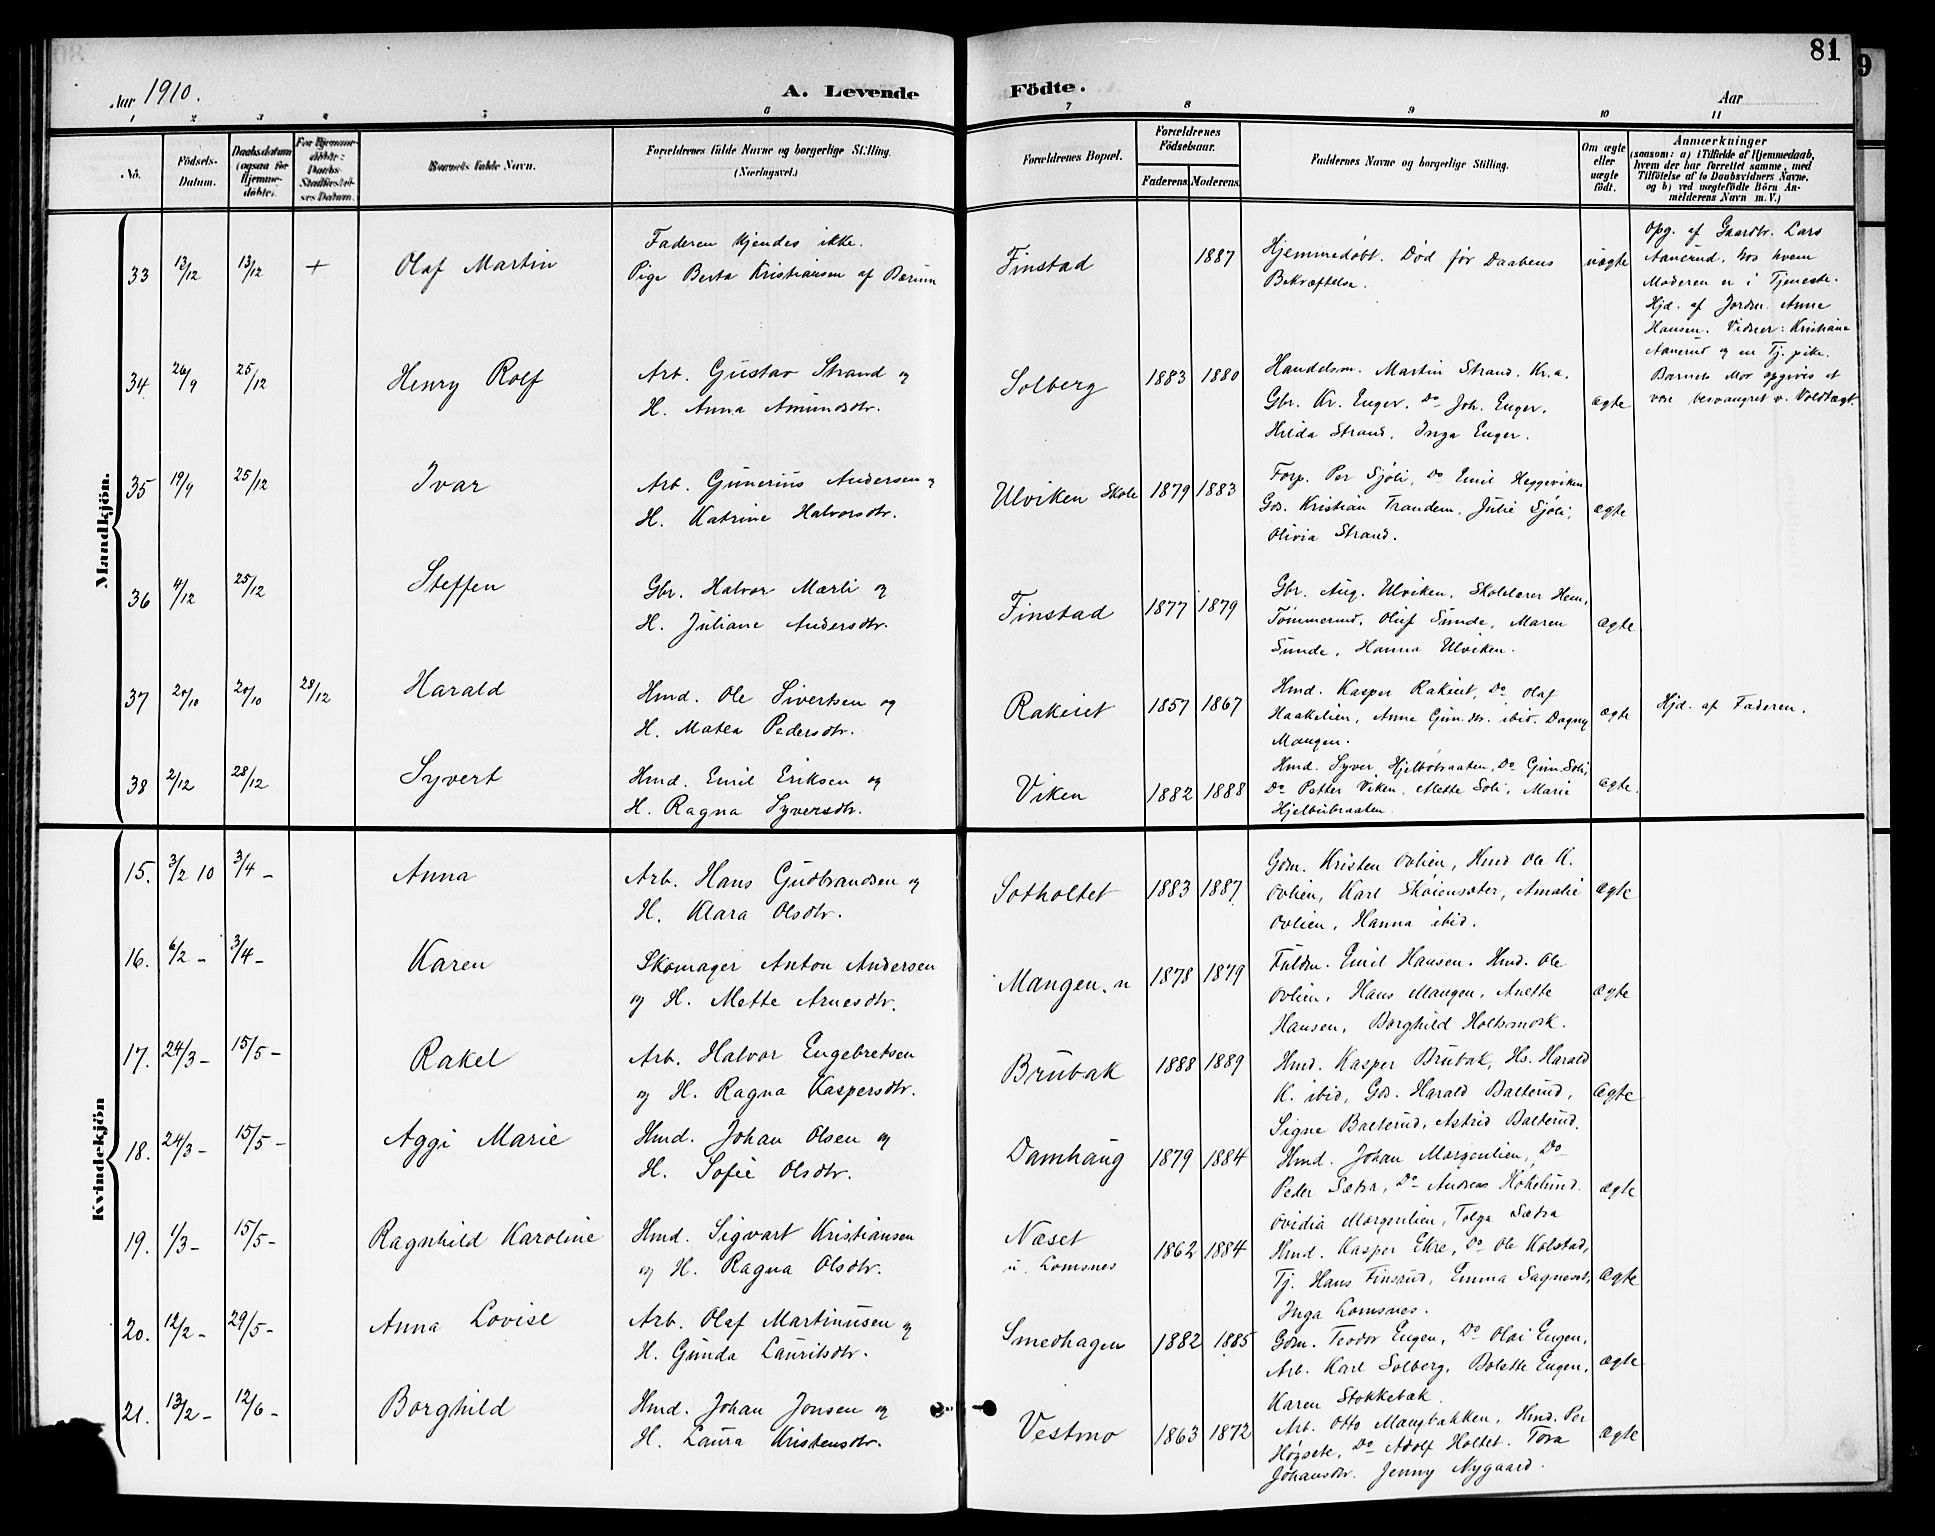 81
Aar 1910.
A. Levende
Födte.
Aar
1 2 3 4 5 6 7 8 9 10 11
No.
Födsels-
Datum.
Daabsdatum
(ogsaa for
Hjemme-
döbte).
For Hjemme-
döbte:
Daabs-
Stadfæstel-
ses Datum.
Barnets fulde Navn.
Forældrenes fulde Navne og borgerlige Stilling.
(Næringsvei.)
Forældrenes Bopæl.
Forældrenes
Födselsaar.
Faderens. Moderens.
Faddernes Navne og borgerlige Stilling.
Om ægte
eller
uægte
födt.
Anmærkninger
(saasom: a) i Tilfælde af Hjemmedaab,
hvem der har forrettet samme, med
Tilföielse af to Daabsvidners Navne,
og b) ved uægtefödte Börn An-
melderens Navn m. V.)
Mandkjön.
33 13/12 13/12 + Olaf Martin
Faderen kjendes ikke.
Pige Berta Kristiansen af Bærum
Finstad 1887
Hjemmedøbt. Død før Daabens
Bekræftelse.
uægte
Opg. af Gaardbr. Lars
Aanerud, hos hvem
Moderen er i Tjeneste.
Hjd. af Jordm. Anne
Hansen. Vidner: Kristiane
Aanerud og en Tj. pike.
Barnets Mor opgives at
være besvangret v. Voldtægt.
34 26/9 25/12 Henry Rolf
Arb. Gustav Strand og
H. Anna Amundsdtr.
Solberg 1883 1880
Handelsm. Martin Strand. Kr.a.
Gbr. Kr. Enger. Do Joh. Enger.
Hilda Strand, Inga Enger.
ægte
35 19/9 25/12 Ivar
Arb. Gunerius Andersen og
H. Katrine Halvorsdtr.
Ulviken Skole 1879 1883
Forp. Per Sjøli, Do Emil Heggeviken
Gds. Kristian Trandem. Julie Sjøli,
Olivia Strand.
ægte
36 4/12 25/12 Steffen
Gbr. Halvor Mærli og
H. Juliane Andersdtr.
Finstad 1877 1879
Gbr. Aug. Ulviken, Skolelærer Hem,
Tømmerud, Oluf Sunde, Maren
Sunde, Hanna Ulviken.
ægte
37 20/10 20/10 28/12 Harald
Hmd. Ole Sivertsen og
H. Matea Pedersdtr.
Rakeiet 1857 1867
Hmd. Kasper Rakeiet, Do Olaf
Haakelien, Anne Gun.dtr. ibid. Dagny
Mangen.
ægte
Hjd. af Faderen.
38 2/12 28/12 Syvert
Hmd. Emil Eriksen og
H. Ragna Syversdtr.
Viken 1882 1888
Hmd. Syver Hjelbøbraaten, Do Gun. Soli,
Do Petter Viken, Mette Soli, Marie
Hjelbubraaten
ægte.
Kvindekjön
15. 3/2 10 3/4 - Anna
Arb. Hans Gudbrandsen og
H. Klara Olsdtr.
Sotholtet 1883 1887
Gdm. Kristen Ovlien, Hmd Ole K.
Ovlien, Karl Skøiensæter, Amalie
Ovlien, Hanna ibid.
ægte
16. 6/2 - 3/4 - Karen
Skomager Anton Andersen
og H. Mette Arnesdtr.
Mangen. n 1878 1879
Fuldm. Emil Hansen. Hmd. Ole
Ovlien, Hans Mangen, Anette
Hansen, Borghild Holtsmosk.
ægte
17. 24/3 - 15/5 - Rakel
Arb. Halvor Engebretsen
og H. Ragna Kaspersdtr.
Brubak 1888 1889
Hmd. Kasper Brubak, Hs. Harald
K. ibid, Gds. Harald Balterud,
Signe Balterud, Astrid Balterud.
ægte
18. 24/3 - 15/5 - Aggi Marie
Hmd. Johan Olsen og
H. Sofie Olsdtr.
Damhaug 1879 1884
Hmd. Johan Morgenlien, Do
Peder Sætra, Do Andreas Hokelund.
Ovidia Morgenlien, Tolga Sætra
ægte
19. 1/3 - 15/5 - Ragnhild Karoline
Hmd. Sigvart Kristiansen
og H. Ragna Olsdtr.
Næset
u. Lomsnes
1862 1884
Hmd. Kasper Ekre, Do Ole Kolstad,
Tj. Hans Finsrud, Emma Sagneset,
Inga Lomsnes.
ægte
20. 12/2 - 29/5 - Anna Lovise
Arb. Olaf Martinusen og
H. Gunda Lauritsdtr.
Smedhagen 1882 1885
Gdm. Teodor Eugen, Do Olai Eugen,
Arb. Karl Solberg, Bolette Eugen,
Karen Stokkebæk.
ægte
21. 13/2 - 12/6 - Borghild
Hmd. Johan Jonsen og
H. Laura Kristensdtr.
Vestmo 1863 1872
Arb. Otto Mangbakken, Hmd. Per
Høgsete, Do Adolf Holtet. Tora
Johansdtr. Jenny Nygaard.
ægte